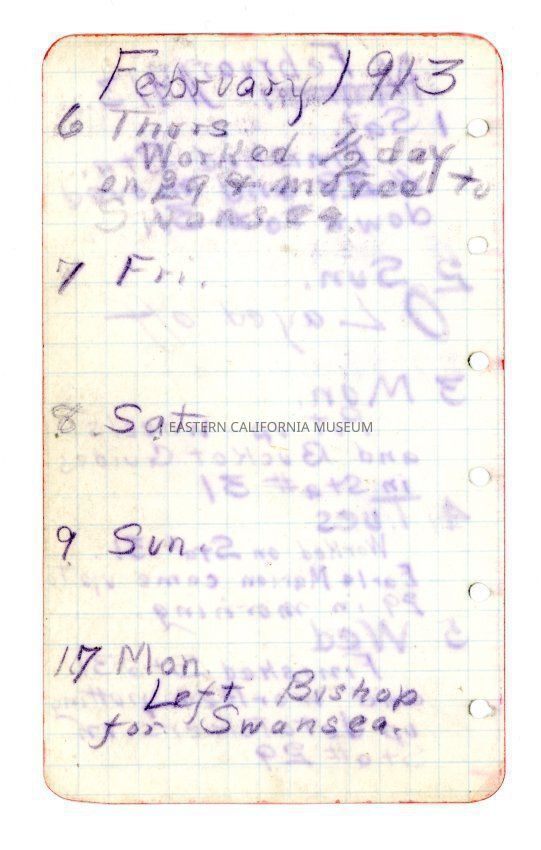 February 1913
6 Thurs.
Worked 1/2 day
on 29 & moved to
Swansea.
7 Fri.
8 Sat.
EASTERN CALIFORNIA MUSEUM
9 Sun.
17 Mon.
Left Bishop
for Swansea.